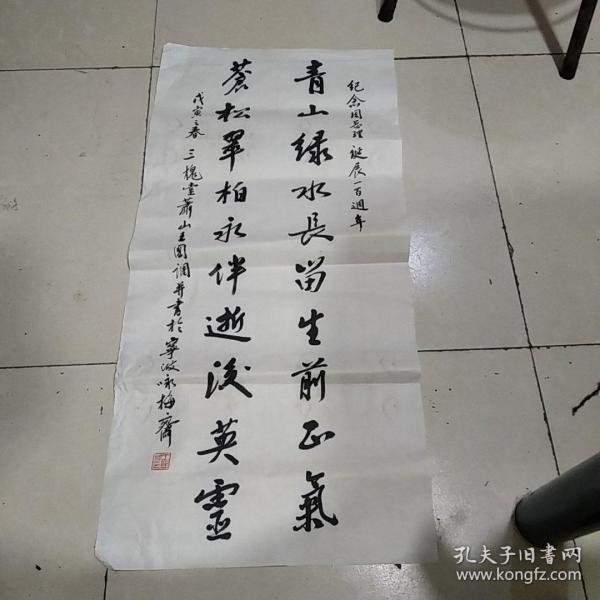 纪念周总理诞辰一百週年
青山绿水長留生前正氣
蒼松翠柏永伴逝後英靈
戊寅之春 三槐堂蕭山王圆调并書於寧波咏梅齋
孔夫子旧书网
www.kongfz.com